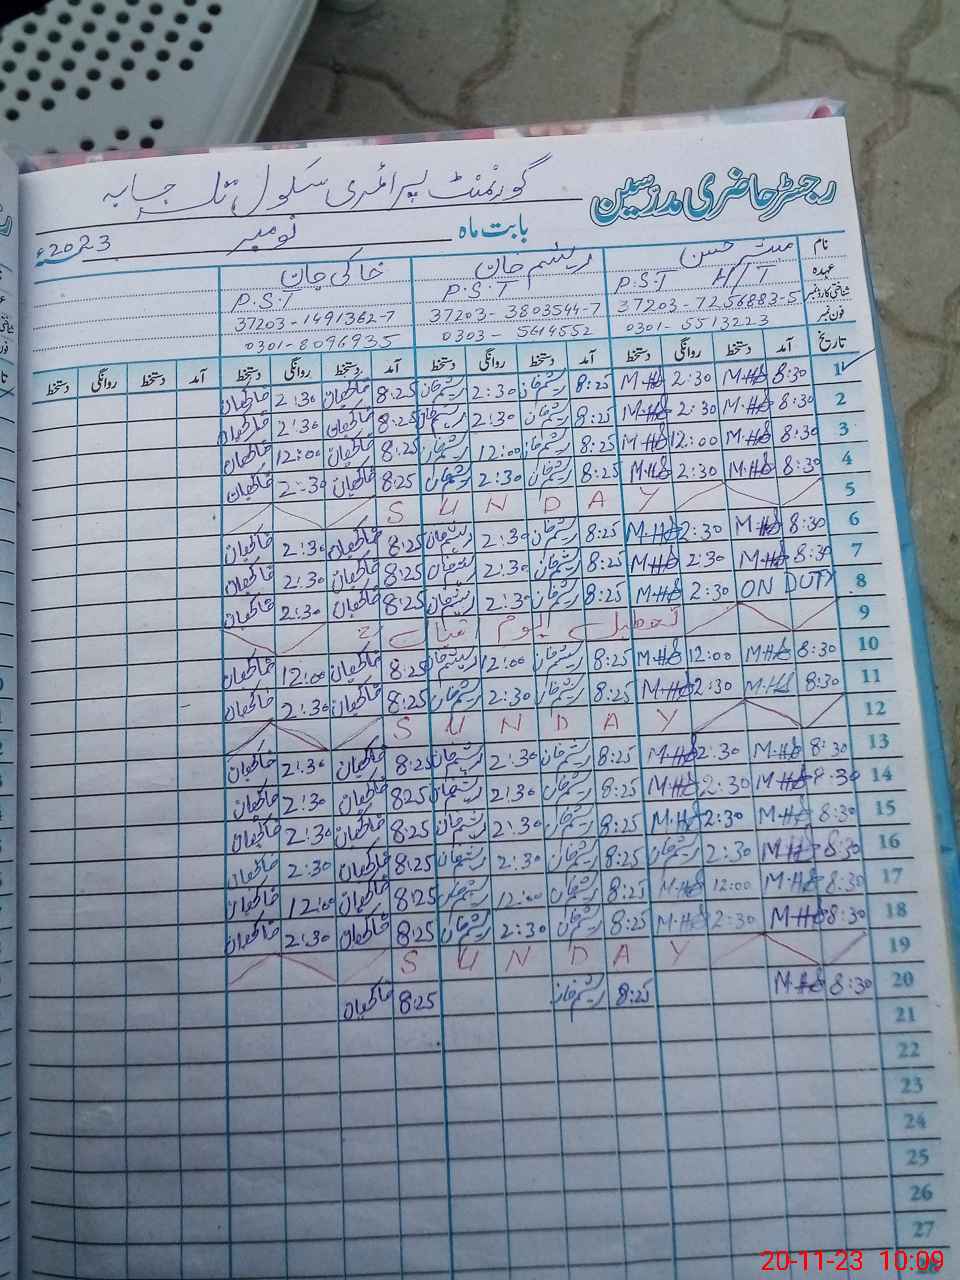 رجسٹر حاضری مدرسین گورنمنٹ پرائمری سکول جابہ
بابت ماہ نومبر 2023ء
نام حسن ریشم خان خاکی جان
عہدہ P.S.T H/T P.S.T P.S.T
شناختی کارڈ نمبر 37203-7256883-5 37203-3803544-7 37203-1491362-7
فون نمبر 0301-5513223 0303-5614552 0301-8096935
تاریخ آمد دستخط روانگی دستخط آمد دستخط روانگی دستخط آمد دستخط روانگی دستخط آمد دستخط روانگی دستخط
1 8:30 2:30 8:25 ریشم خان 2:30 ریشم خان 8:25 خاکی جان 2:30 خاکی جان
2 8:30 2:30 8:25 ریشم خان 2:30 ریشم خان 8:25 خاکی جان 2:30 خاکی جان
3 8:30 12:00 8:25 ریشم خان 12:00 ریشم خان 8:25 خاکی جان 12:00 خاکی جان
4 8:30 2:30 8:25 ریشم خان 2:30 ریشم خان 8:25 خاکی جان 2:30 خاکی جان
5 SUNDAY
6 8:30 2:30 8:25 ریشم خان 2:30 ریشم خان 8:25 خاکی جان 2:30 خاکی جان
7 8:30 2:30 8:25 ریشم خان 2:30 ریشم خان 8:25 خاکی جان 2:30 خاکی جان
8 ON DUTY 2:30 8:25 ریشم خان 2:30 ریشم خان 8:25 خاکی جان 2:30 خاکی جان
9 تعطیل یوم اقبال
10 8:30 12:00 8:25 ریشم خان 12:00 ریشم خان 8:25 خاکی جان 12:00 خاکی جان
11 8:30 2:30 8:25 ریشم خان 2:30 ریشم خان 8:25 خاکی جان 2:30 خاکی جان
12 SUNDAY
13 8:30 2:30 8:25 ریشم خان 2:30 ریشم خان 8:25 خاکی جان 2:30 خاکی جان
14 8:30 2:30 8:25 ریشم خان 2:30 ریشم خان 825 خاکی جان 2:30 خاکی جان
15 8:30 2:30 8:25 ریشم خان 2:30 ریشم خان 8:25 خاکی جان 2:30 خاکی جان
16 8:30 2:30 ریشم خان 8:25 ریشم خان 2:30 ریشم خان 8:25 خاکی جان 2:30 خاکی جان
17 8:30 12:00 8:25 ریشم خان 12:00 ریشم خان 8:25 خاکی جان 12:00 خاکی جان
18 8:30 2:30 8:25 ریشم خان 2:30 ریشم خان 8:25 خاکی جان 2:30 خاکی جان
19 SUNDAY
20 8:30 8:25 ریشم خان 8:25 خاکی جان
21
22
23
24
25
26
27
20-11-23 10:09